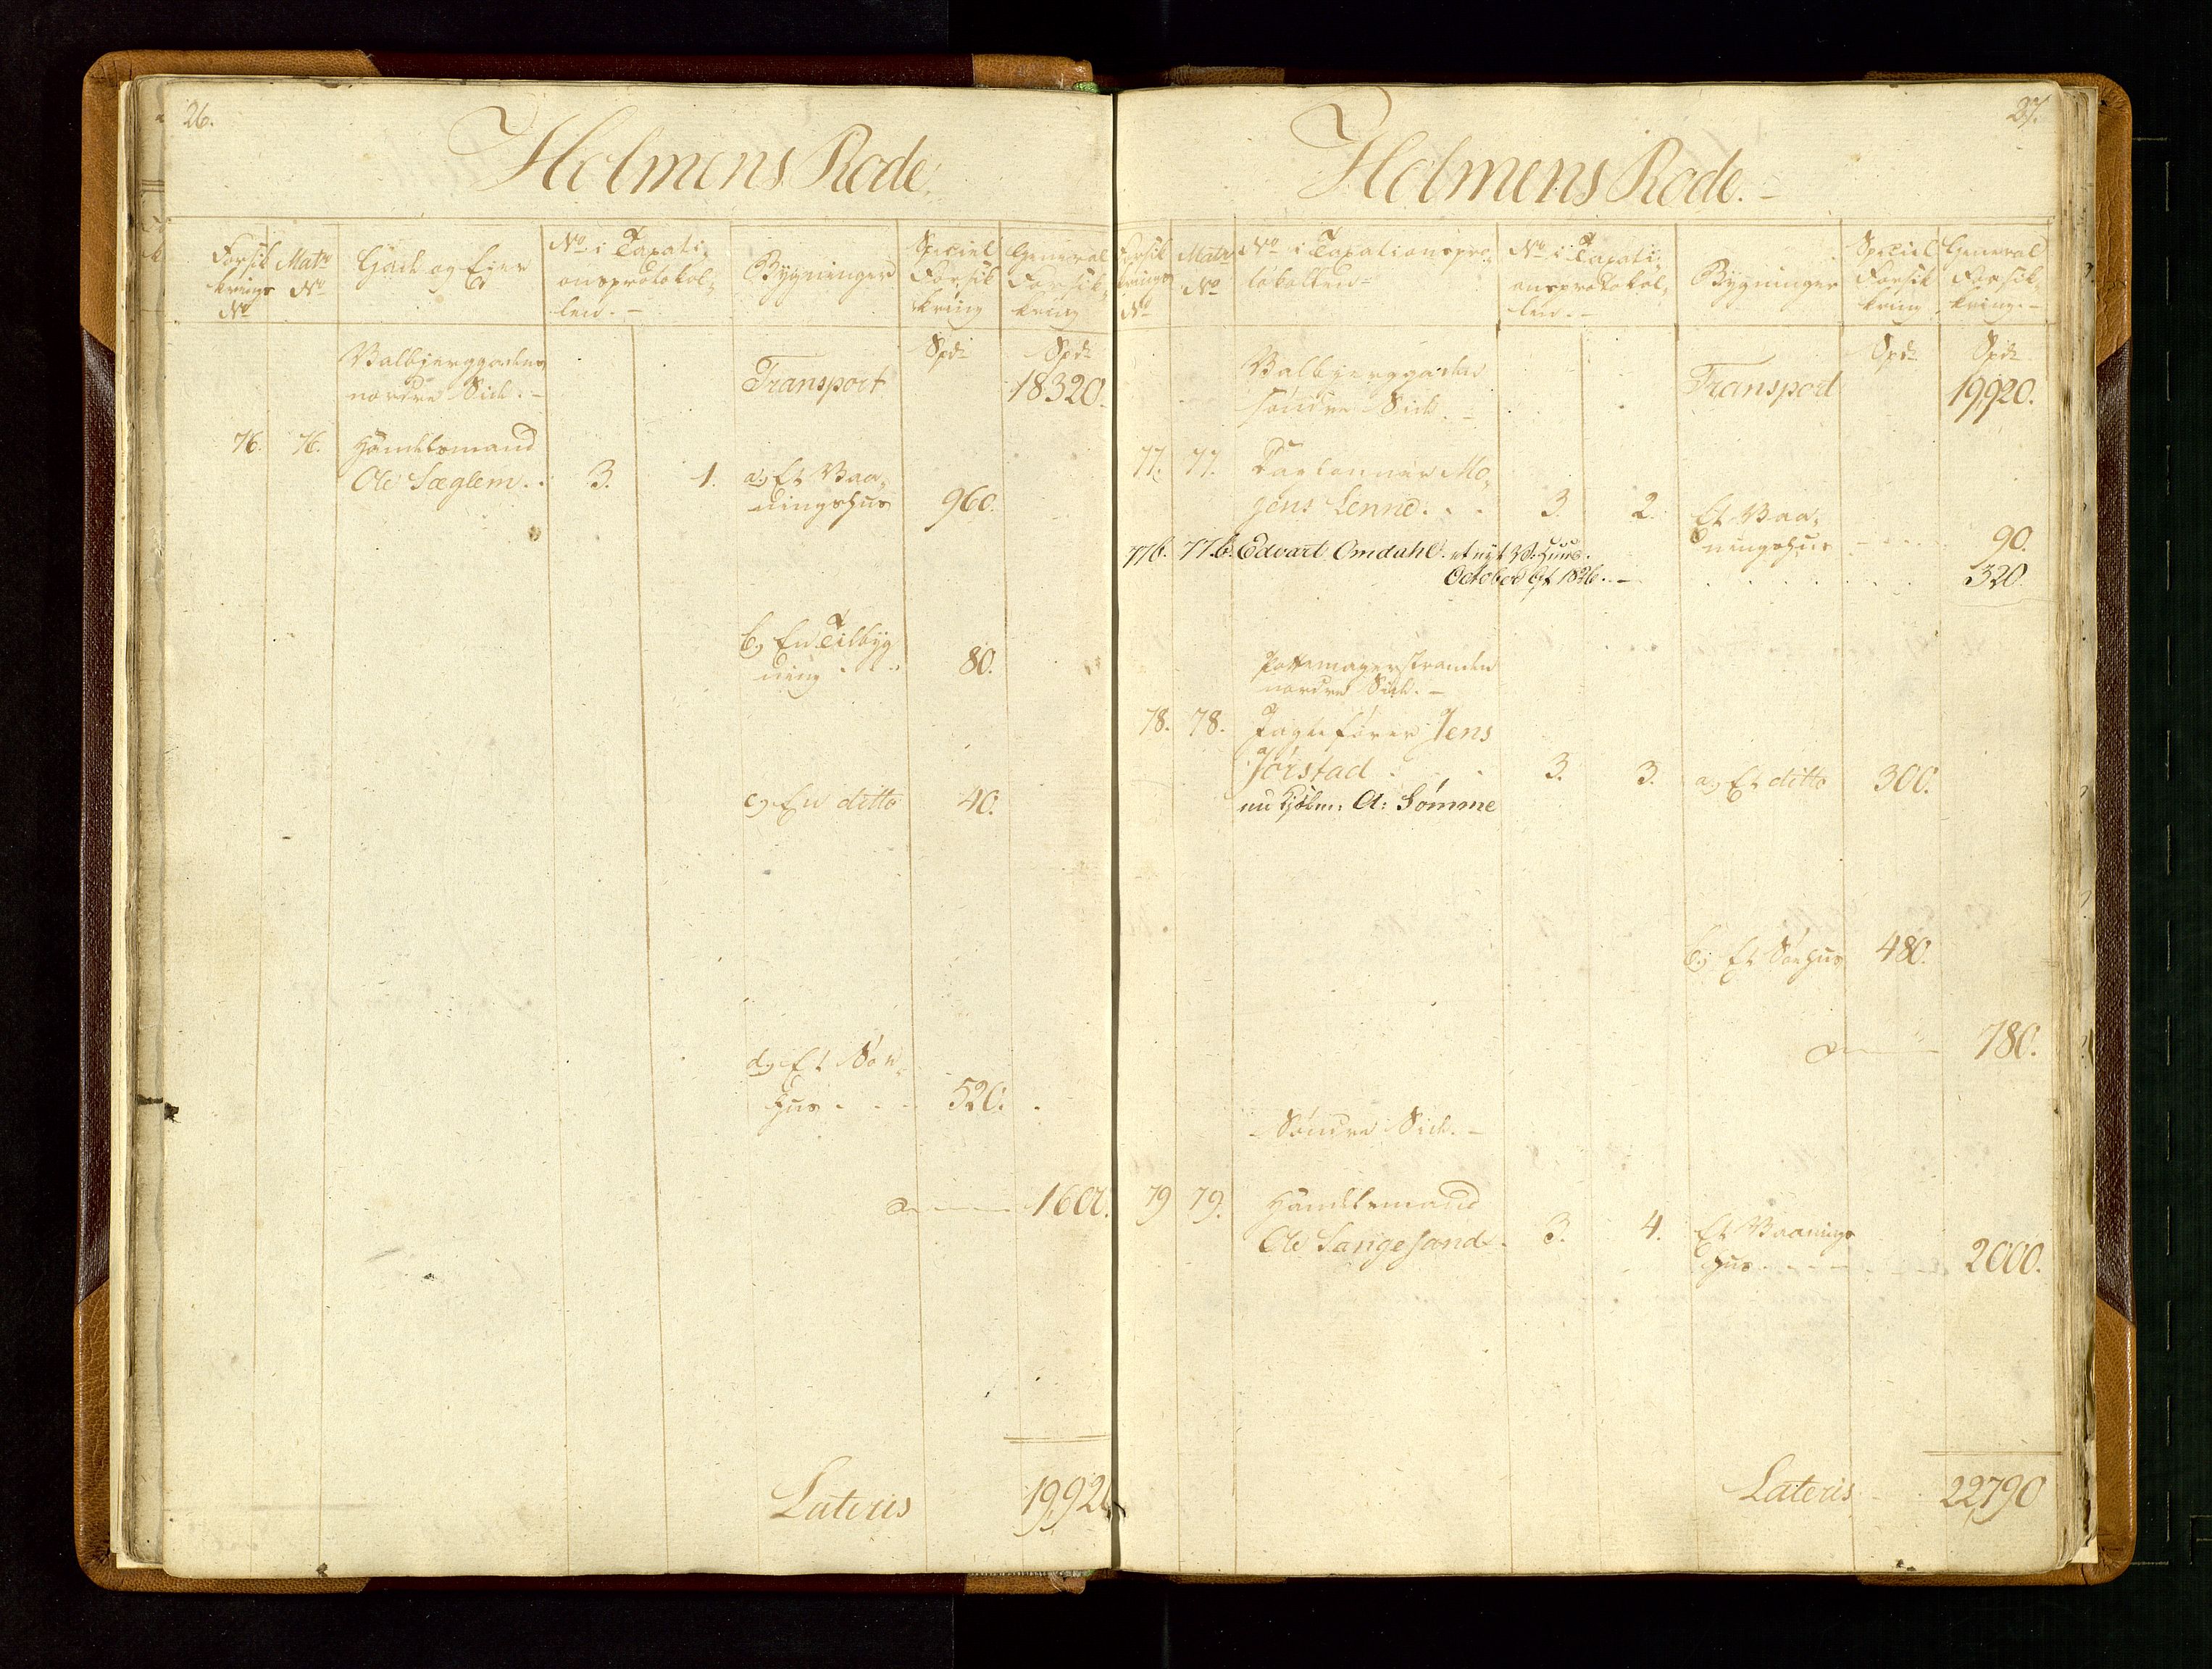 26.
Holmens Rode.
Forsik
krings
No
Matr
No
Gade og Eier
No i Taxati-
onsprotokol-
len.-
Bygninger
Speciel
Forsik
kring
General
Forsik-
kring
Valbjerggadens
nordre Side.-
Transport
Spd:
Spd:
18320.
76. 76. Handelsmand
Ole Sæglem. . 3. 1. a, Et Vaa-
ningshus 960.
b, En Tilbyg
ning . . . 80.
c, En ditto 40.
d, Et Søe-
hus . . . 520. .
1600.
Lateris 19,920
27.
Holmens Rode.-
Forsik
krings
No
Matr
No
No i Taxationspro-
tokollen-
No i Taxati-
onsprotokol-
len.-
Bygninger
Speciel
Forsik
kring
General
Forsik-
kring.-
Valbjerggadens
søndre Side.-
Transport
Spd:
Spd:
19,920.
77. 77. Taglønner Mo-
gens Lenne. . . 3. 2. Et Vaa-
ningshus 90.
77b. 77.b. Edvart Omdahl. et nyt V. Huus.
October Qt 1826. - 320.
Pottemagerstranden
nordre Side.-
78. 78. Jagtefører Jens
Jørstad . . 3. 3. a, Et ditto 300.
nu Kjøbm: A: Sømme
b, Et Søehus 480.
780.
Søndre Side.-
79 79. Handelsmand
Ole Langesand . 3. 4. Et Vaanings
hus . . . 2000.
Lateris 22,790